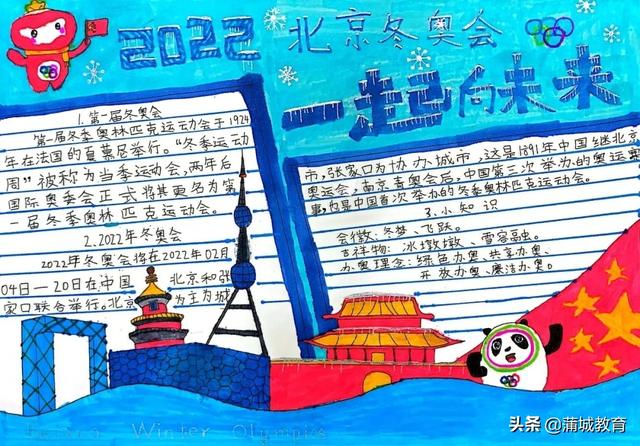 2022
北京冬奥会
一起向未来
1.第一届冬奥会
第一届冬季奥林匹克运动会于1924
年在法国的夏慕尼举行。“冬季运动
周”被称为当季运动会,两年后
国际奥委会正式将其更名为第
一届冬季奥林匹克运动会。
2.2022年冬奥会
2022年冬奥会将在2022年02月
04日—20日在中国 北京和张
家口联合举行。北京 为主办城
市,张家口为协办城市,这是1891年中国继北京
奥运会,南京青奥会后,中国第三次举办的奥运赛
事,也是中国首次举办的冬季奥林匹克运动会。
3.小知识
会徽:冬梦、飞跃。
吉祥物:冰墩墩、雪容融。
办奥理念:绿色办奥、共享办奥、
开放办奥、廉洁办奥。
Winter Olympics
头条 @蒲城教育